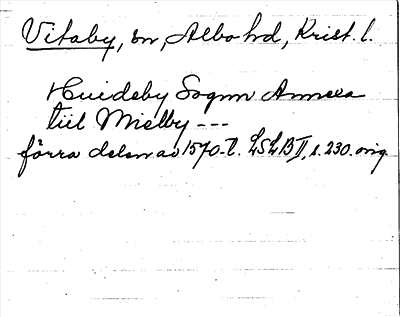 Vitaby, sn, Albo hd, Krist. l.
Huideby Sognn Annexa
till Mielby ---
förra delen av 1570-t. LSLB II, s. 230. orig.